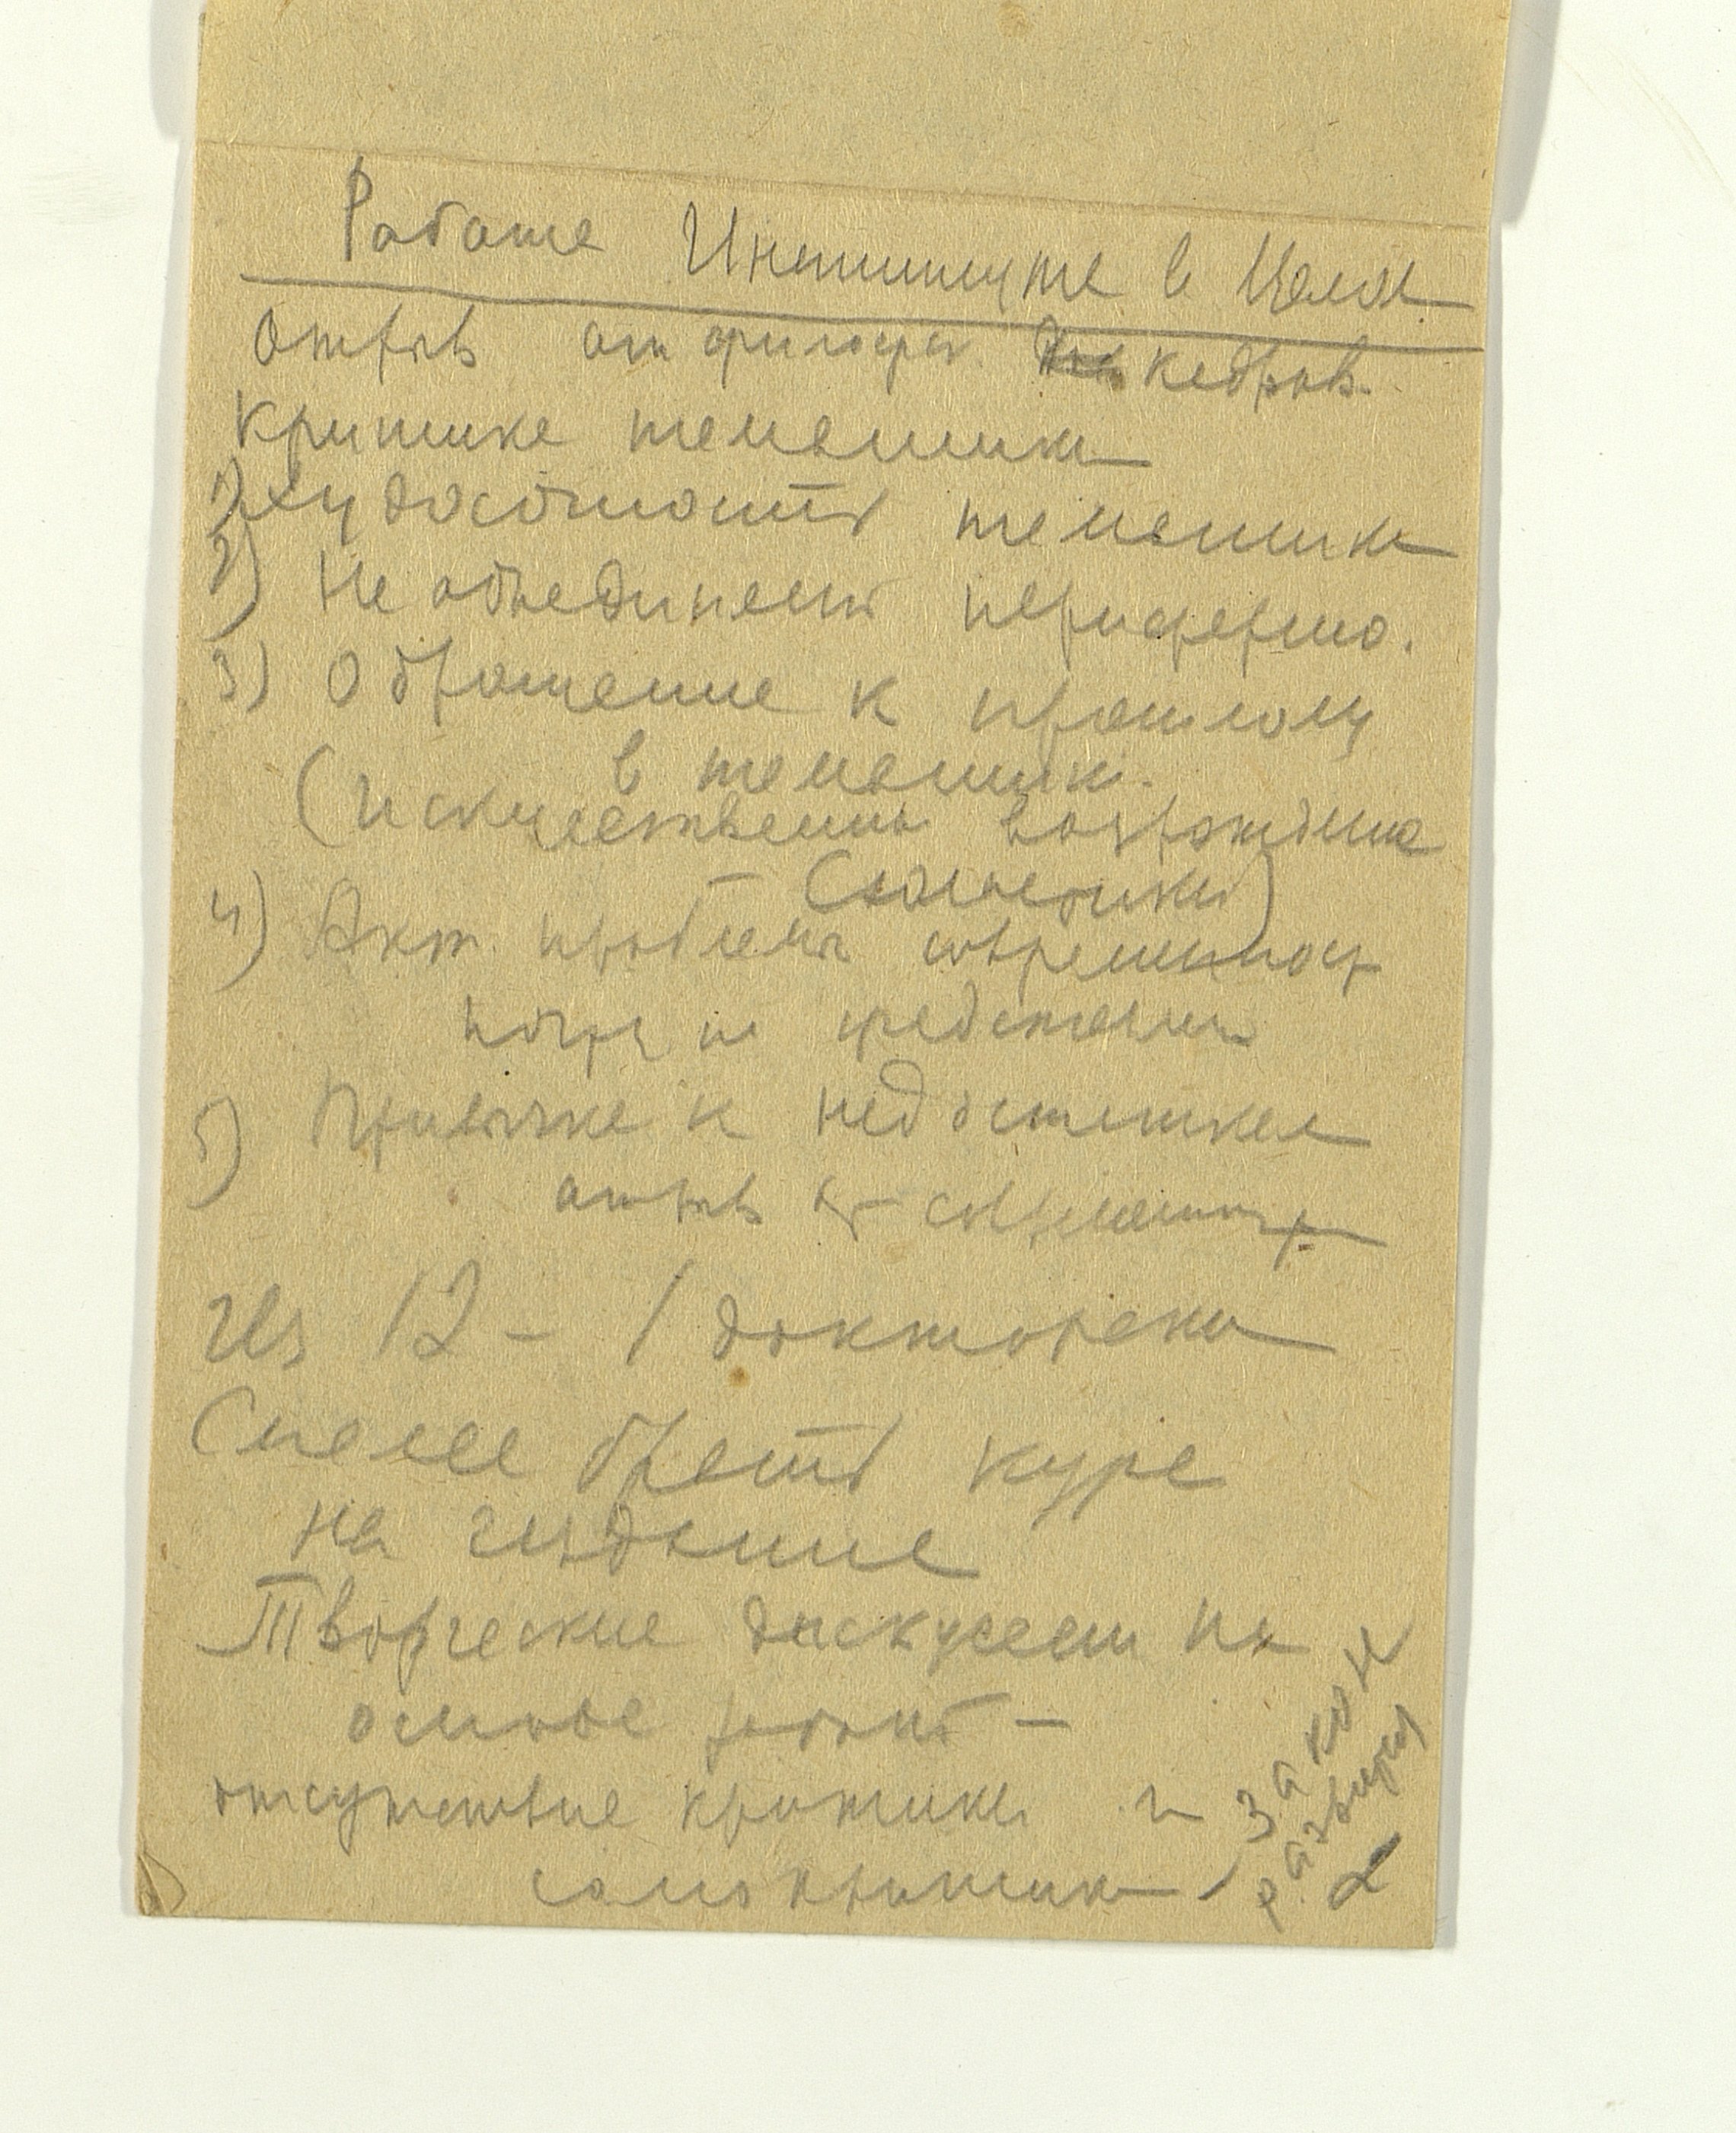 Работа Института в целом
Отрыв от философа Кедров.
критика тематики
1) Худосочность тематики
2) Не объединяет периферию.
3) Обращение к прошлому
в тематик.
(искусственны возрождение
4) Акт. проблемы современност
не представлены
5) Привычка к недостаткам
отрыв от современност
Из 12 – 1 докторска
Смелее брать курс
на издание
Творческие дискуссии на
основе работ –
отсутствие критики и
самокритики
закон
развития